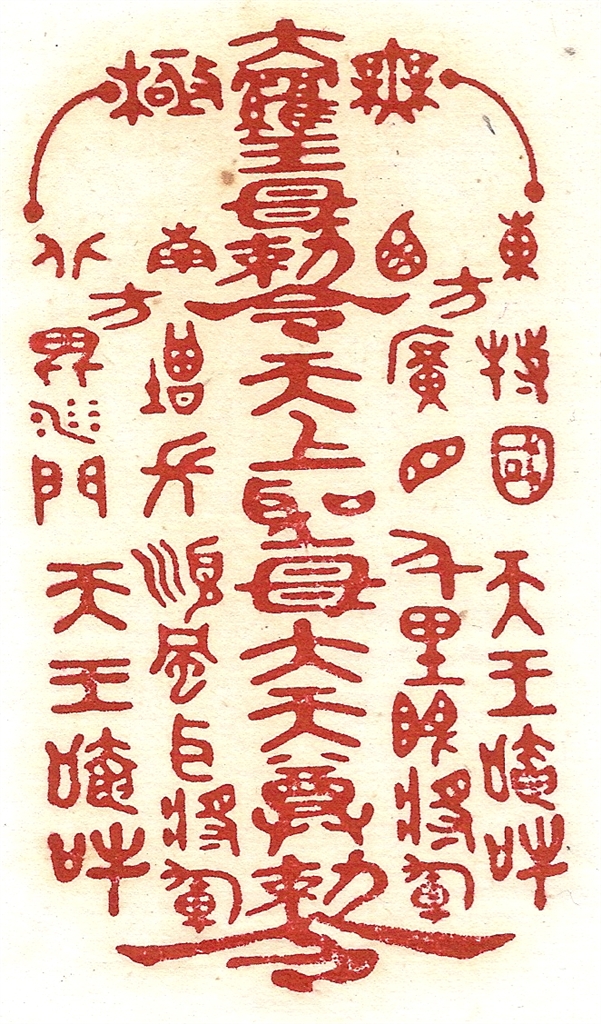 無極
大羅王母勅令天上聖母大天尊勅令
東方持國天王唵吽
西廣目千里眼將軍
南方增長順風耳將軍
北毘沙門天王唵吽